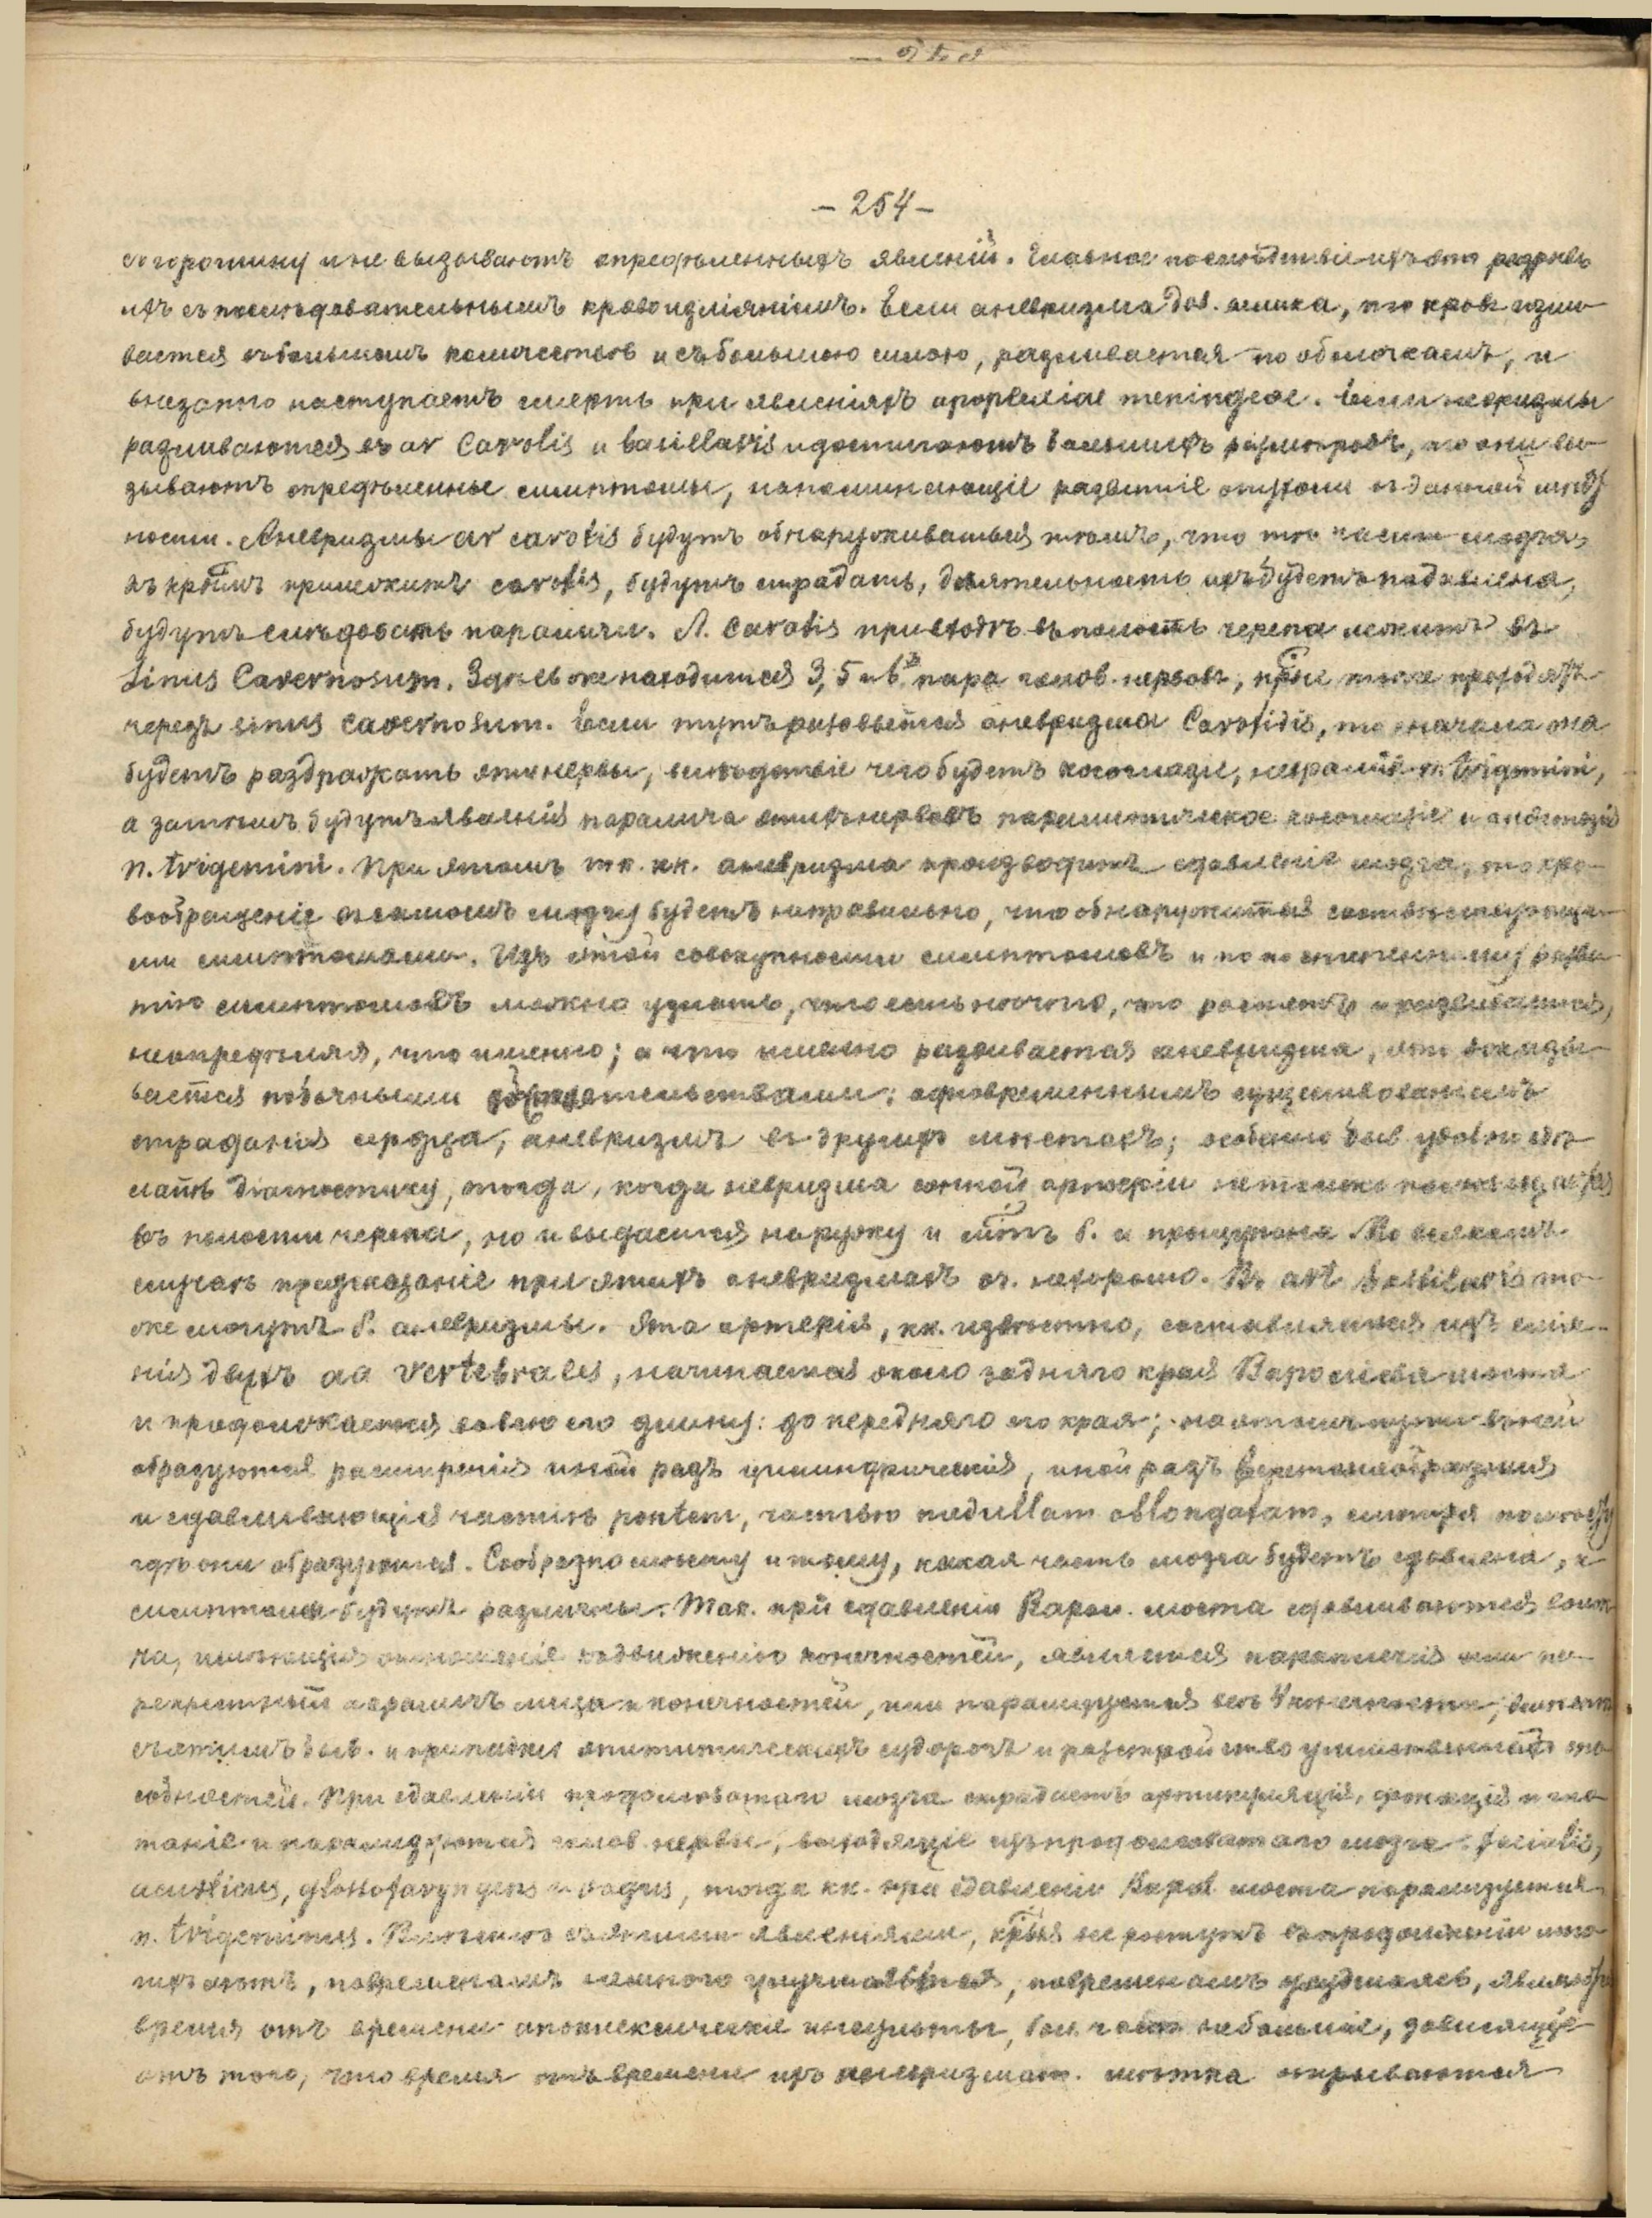 — 254 —
съ горошину и не вызываютъ опредѣленныхъ явленій. Главное послѣдствіе ихъ это разрывъ
ихъ съ послѣдовательнымъ кровоизліяніемъ. Если аневризма дов. велика, то кровь изли-
вается въ большомъ количествѣ и съ большою силою, разливается по оболочкамъ, и
внезапно наступаетъ смерть при явленіяхъ apoplexiae meningeae. Если невризмы
развиваются въ ar Carotis и basillaris и достигаютъ большихъ размѣровъ, то они вы-
зываютъ опредѣленные симптомы, напоминающіе развитіе опухоли въ данной мѣст
ности. Аневризмы ar carotis будутъ обнаруживаться тѣмъ, что тѣ части мозга,
къ крымъ прилежитъ carotis, будутъ страдать, дѣятельность ихъ будетъ подавлена,
будутъ слѣдовать параличи. A. Carotis при входѣ въ полость черепа лежитъ въ
Sinus Cavernosum. Здѣсь же находится 3, 5 и 6 пара голов. нервовъ, крые также проходятъ
черезъ sinus cavernosum. Если тутъ разовьется аневризма Carotidis, то сначала она
будетъ раздражать эти нервы, вслѣдствіе чего будетъ косоглазіе, невралгія n. trigemini,
а затѣмъ будутъ явленія паралича этихъ нервовъ паралитическое косоглазіе и анестезія
n. trigemini. При этомъ т. к. кк. аневризма производитъ сдавленіе мозга, то кро-
вообращеніе въ самомъ мозгу будетъ неправильно, что обнаружится соотвѣтствующи-
ми симптомами. Изъ этой совокупности симптомовъ и по постепенному разви-
тію симптомовъ можно узнать, что есть нѣчто, что растетъ и развивается,
неопредѣляя, что именно; а что именно развивается аневризма, это доказы-
вается побочными обстоятельствами: одновременнымъ существованіемъ
страданія сердца, аневризмъ въ другихъ мѣстахъ; особенно быв. удобно сдѣ-
лать діагностику, тогда, когда невризма сонной артеріи не только помѣщается
въ полости черепа, но и выдается наружу и мтъ б. и прощупана. Во всякомъ
случаѣ предсказаніе при этихъ аневризмахъ оч. нехорошо. Въ art basilaris то-
же могутъ б. аневризмы. Эта артерія, кк. извѣстно, составляется изъ слія-
нія двухъ aa vertebrales, начинается около задняго края Варолiева моста
и продолжается во всю его длину: до передняго его края; на этомъ пути въ ней
образуются расширенія иной разъ цилиндрическія, иной разъ веретенообразныя
и сдавливающія частію pontem, частью medullam oblongatam, смотря по мѣсту
гдѣ они образуются. Сообразно мѣсту и тому, какая часть мозга будетъ сдавлена, и
симптомы будутъ различны. Так. при сдавленіи Варол. моста сдавливаются волок-
на, имѣющія отношеніе къ движенію конечностей, является параплегія или пе-
рекрестный параличъ лица и конечностей, или парализуются всѣ 4 конечности; вмѣстѣ
съ этимъ быв. и припадки эпилептическихъ судорогъ и разстройство умственныхъ спо-
собностей. При сдавленіи продолговатаго мозга страдаетъ артикуляція, фонація и гло-
таніе и парализуются голов. нервы, выходящіе изъ продолговатаго мозга: facialis,
acusticus, glossofaryngens и vagus, тогда кк. при сдавленіи Варол. моста парализуется
n. trigeminus. Вмѣстѣ съ этими явленіями, крыя все ростутъ въ продолженіи мно-
гихъ лѣтъ, повременамъ немного улучшаясь, повременамъ ухудшаясь, являются
время отъ времени апоплексическіе инсульты, бол. част небольшіе, зависящіе
отъ того, что время отъ времени изъ аневризмат. мѣшка открываются